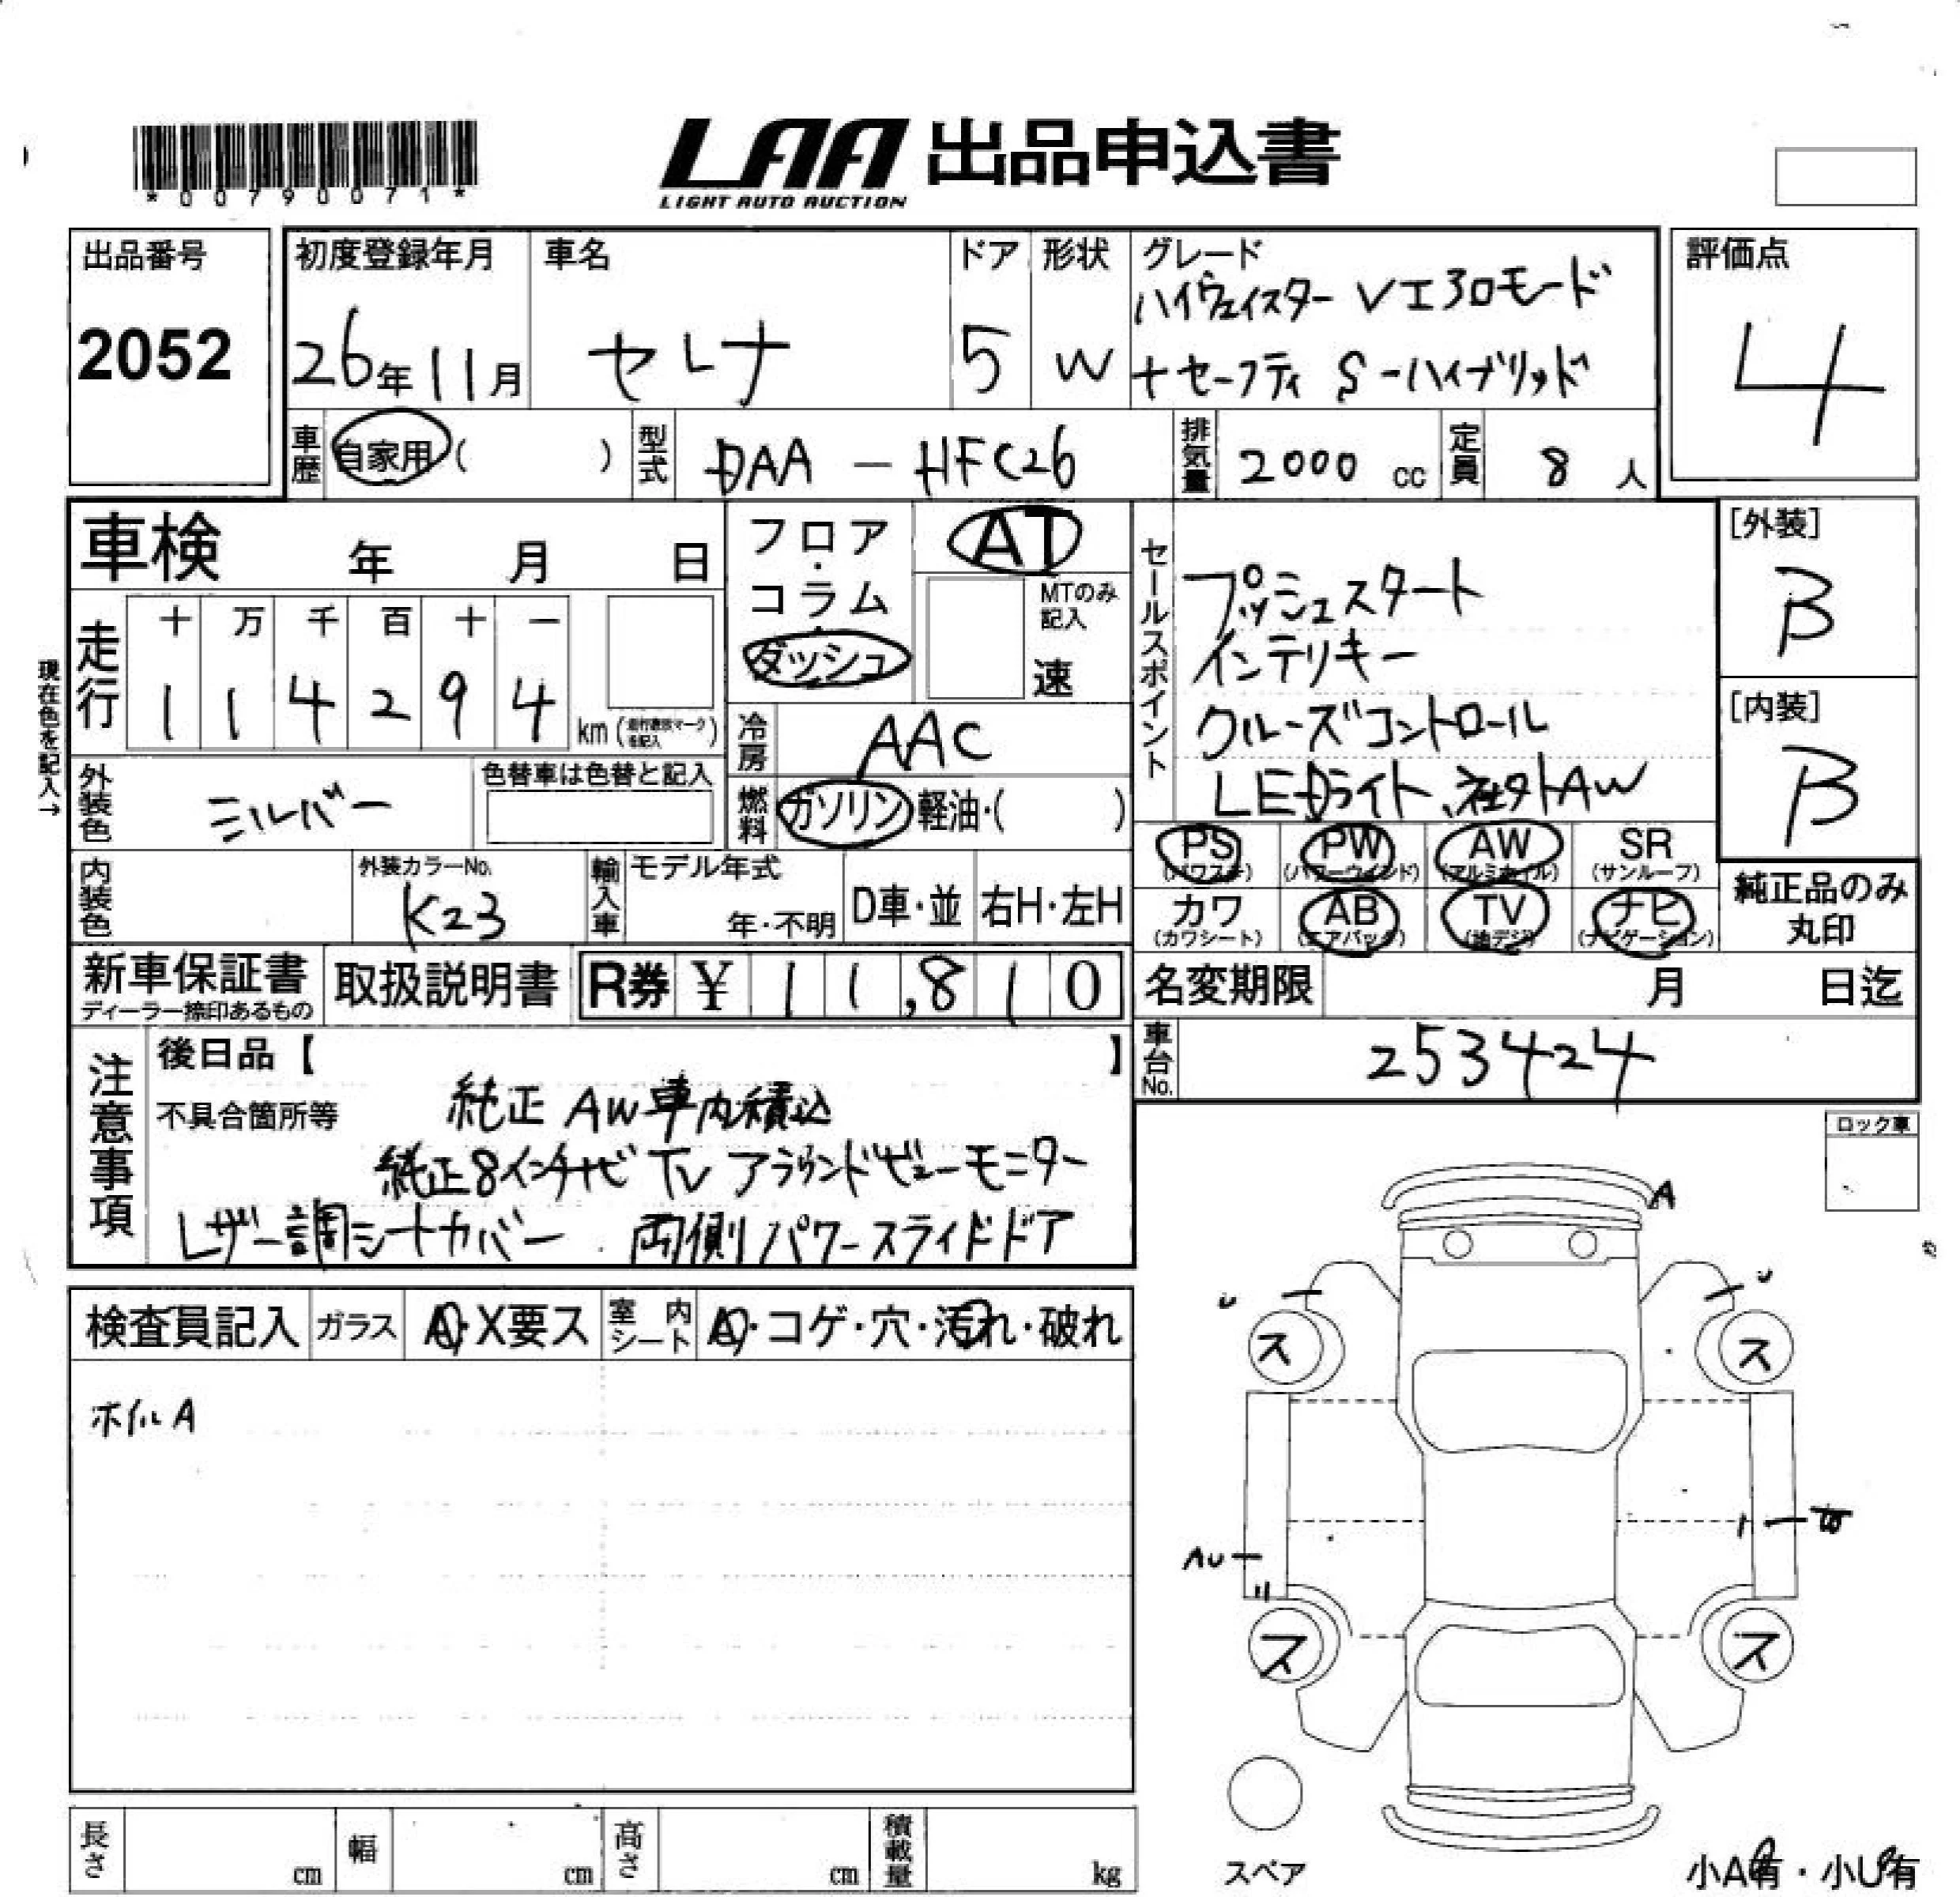 *00790071*
LAA 出品申込書
LIGHT AUTO AUCTION
出品番号
2052
初度登録年月
26年11月
車名
セレナ
ドア
5
形状
W
グレード
ハイウェイスター VI30モード
+セーフティ S-ハイブリッド
評価点
4
車歴 自家用 ( )
型式 DAA - HFC26
排気量 2000 cc
定員 8 人
車検 年 月 日
走行
十 万 千 百 十 一
1 1 4 2 9 4 km
現在色を記入→
外装色 シルバー
色替車は色替と記入
内装色
外装カラーNo.
K23
フロア・コラム・ダッシュ
AT
MTのみ記入
速
冷房 AAC
燃料 ガソリン・軽油・( )
輸入車 モデル年式
年・不明
D車・並
右H・左H
セールスポイント
プッシュスタート
インテリキー
クルーズコントロール
LEDライト、社外AW
[外装]
B
[内装]
B
PS (パワステ)
PW (パワーウインド)
AW (アルミホイル)
SR (サンルーフ)
カワ (カワシート)
AB (エアバック)
TV (地デジ)
ナビ (ナビゲーション)
純正品のみ
丸印
新車保証書
ディーラー捺印あるもの
取扱説明書
R券 ¥ 11,810
名変期限 月 日迄
車台No. 253424
注意事項
後日品【 】
不具合箇所等
純正 AW 車内積込
純正8インチナビ TV アラウンドビューモニター
レザー調シートカバー 両側パワースライドドア
ロック車
検査員記入
ガラス A・X要ス
室内シート A・コゲ・穴・汚れ・破れ
ホイルA
A
U
U
ス
ス
AU
ス
ス
スペア
小A有・小U有
長さ cm
幅 cm
高さ cm
積載量 kg